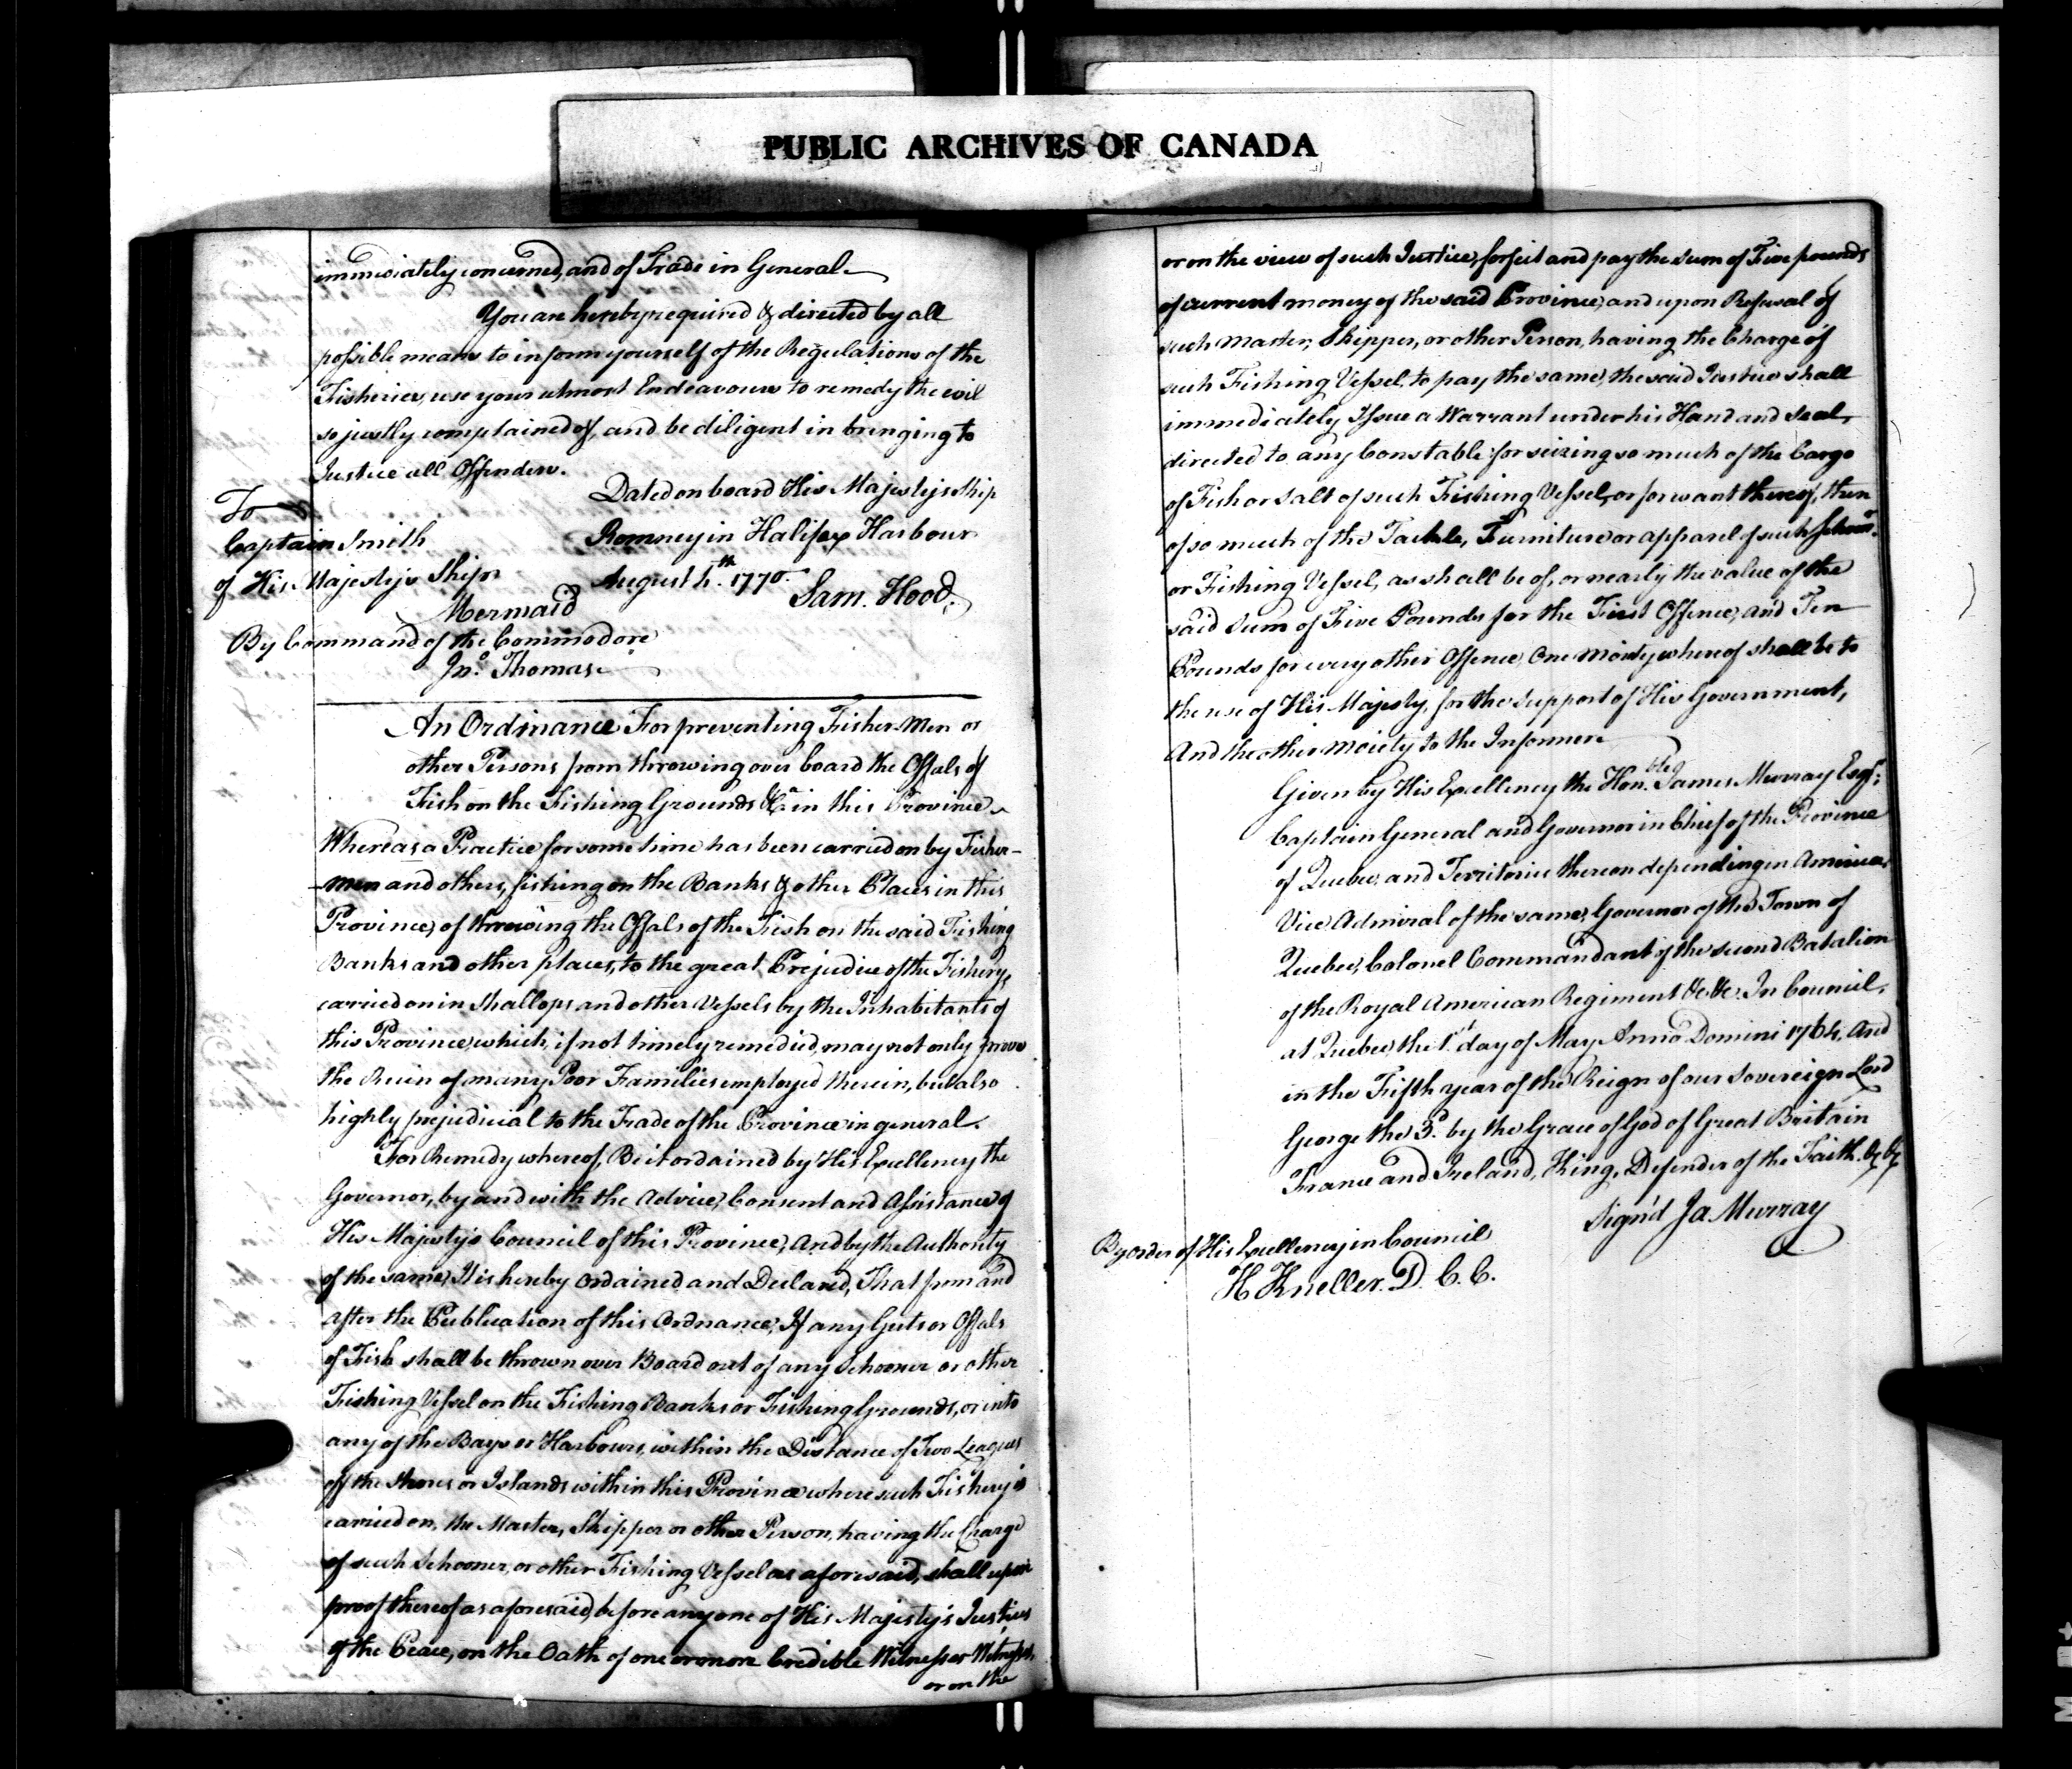 PUBLIC ARCHIVES OF CANADA
immediately concerned, and of Trade in General.
You are hereby required & directed by all
possible means to inform yourself of the Regulations of the
Fisheries, use your utmost Endeavours to remedy the evil
so justly complained of, and be diligent in bringing to
Justice all Offenders.
Dated on board His Majesty's Ship
Romney in Halifax Harbour
August 4th. 1770.
Sam. Hood.
To
Captain Smith
of His Majesty's Ship
Mermaid
By Command of the Commodore
Jno. Thomas.
An Ordinance For preventing Fisher-Men or
other Persons from throwing over board the Offals of
Fish on the Fishing Grounds &ca in this Province
Whereas a Practice for some time has been carried on by Fisher-
-men and others, fishing on the Banks & other Places in this
Province, of throwing the Offals of the Fish on the said Fishing
Banks and other places, to the great Prejudice of the Fishery,
carried on in Shallops and other Vessels by the Inhabitants of
this Province, which, if not timely remedied, may not only prove
the Ruin of many Poor Families employed therein, but also
highly prejudicial to the Trade of the Province in general.
For Remedy whereof, Be it ordained by His Excellency the
Governor, by and with the Advice, Consent and Assistance of
His Majesty's Council of this Province, And by the Authority
of the same, It is hereby Ordained and Declared, That from and
after the Publication of this Ordnance, If any Guts or Offals
of Fish shall be thrown over Board out of any Schooner or other
Fishing Vessel on the Fishing Banks or Fishing Grounds, or into
any of the Bays or Harbours, within the Distance of Two Leagues
off the Shores or Islands within this Province where such Fishery is
carried on, the Master, Skipper or other Person, having the Charge
of such Schooner, or other Fishing Vessel as aforesaid, shall upon
proof thereof as aforesaid, before any one of His Majesty's Justices
of the Peace, on the Oath of one or more Credible Witness or Witnesses,
or on the
or on the view of such Justice, forfeit and pay the sum of Five pounds
of current money of the said Province, and upon Refusal of
such Master, Skipper, or other Person, having the Charge of
such Fishing Vessel, to pay the same, the said Justice shall
immediately Issue a Warrant under his Hand and Seal,
directed to any Constable for seizing so much of the Cargo
of Fish or Salt of such Fishing Vessel, or for want thereof, then
of so much of the Tackle, Furniture or apparel of such Schoonr.
or Fishing Vessel, as shall be of, or nearly the value of the
said Sum of Five Pounds for the First Offence, and Ten
Pounds for every other Offence, One Moiety whereof shall be to
the use of His Majesty, for the support of His Government,
And the other moiety to the Informer
Given by His Excellency the Honble James Murray Esqr.
Captain General and Governor in Chief of the Province
of Quebec, and Territories thereon depending in America,
Vice Admiral of the same, Governor of the Town of
Quebec, Colonel Commandant of the second Batalion
of the Royal American Regiment &c. &c. In Council,
at Quebec, the 1st day of May Anno Domini 1764, And
in the Fifth year of the Reign of our Sovereign Lord
George the 3d. by the Grace of God of Great Britain
France and Ireland, King, Defender of the Faith. &c &c
Sign'd Ja Murray
By order of His Excellency in Council
H Kneller. D. C. C.